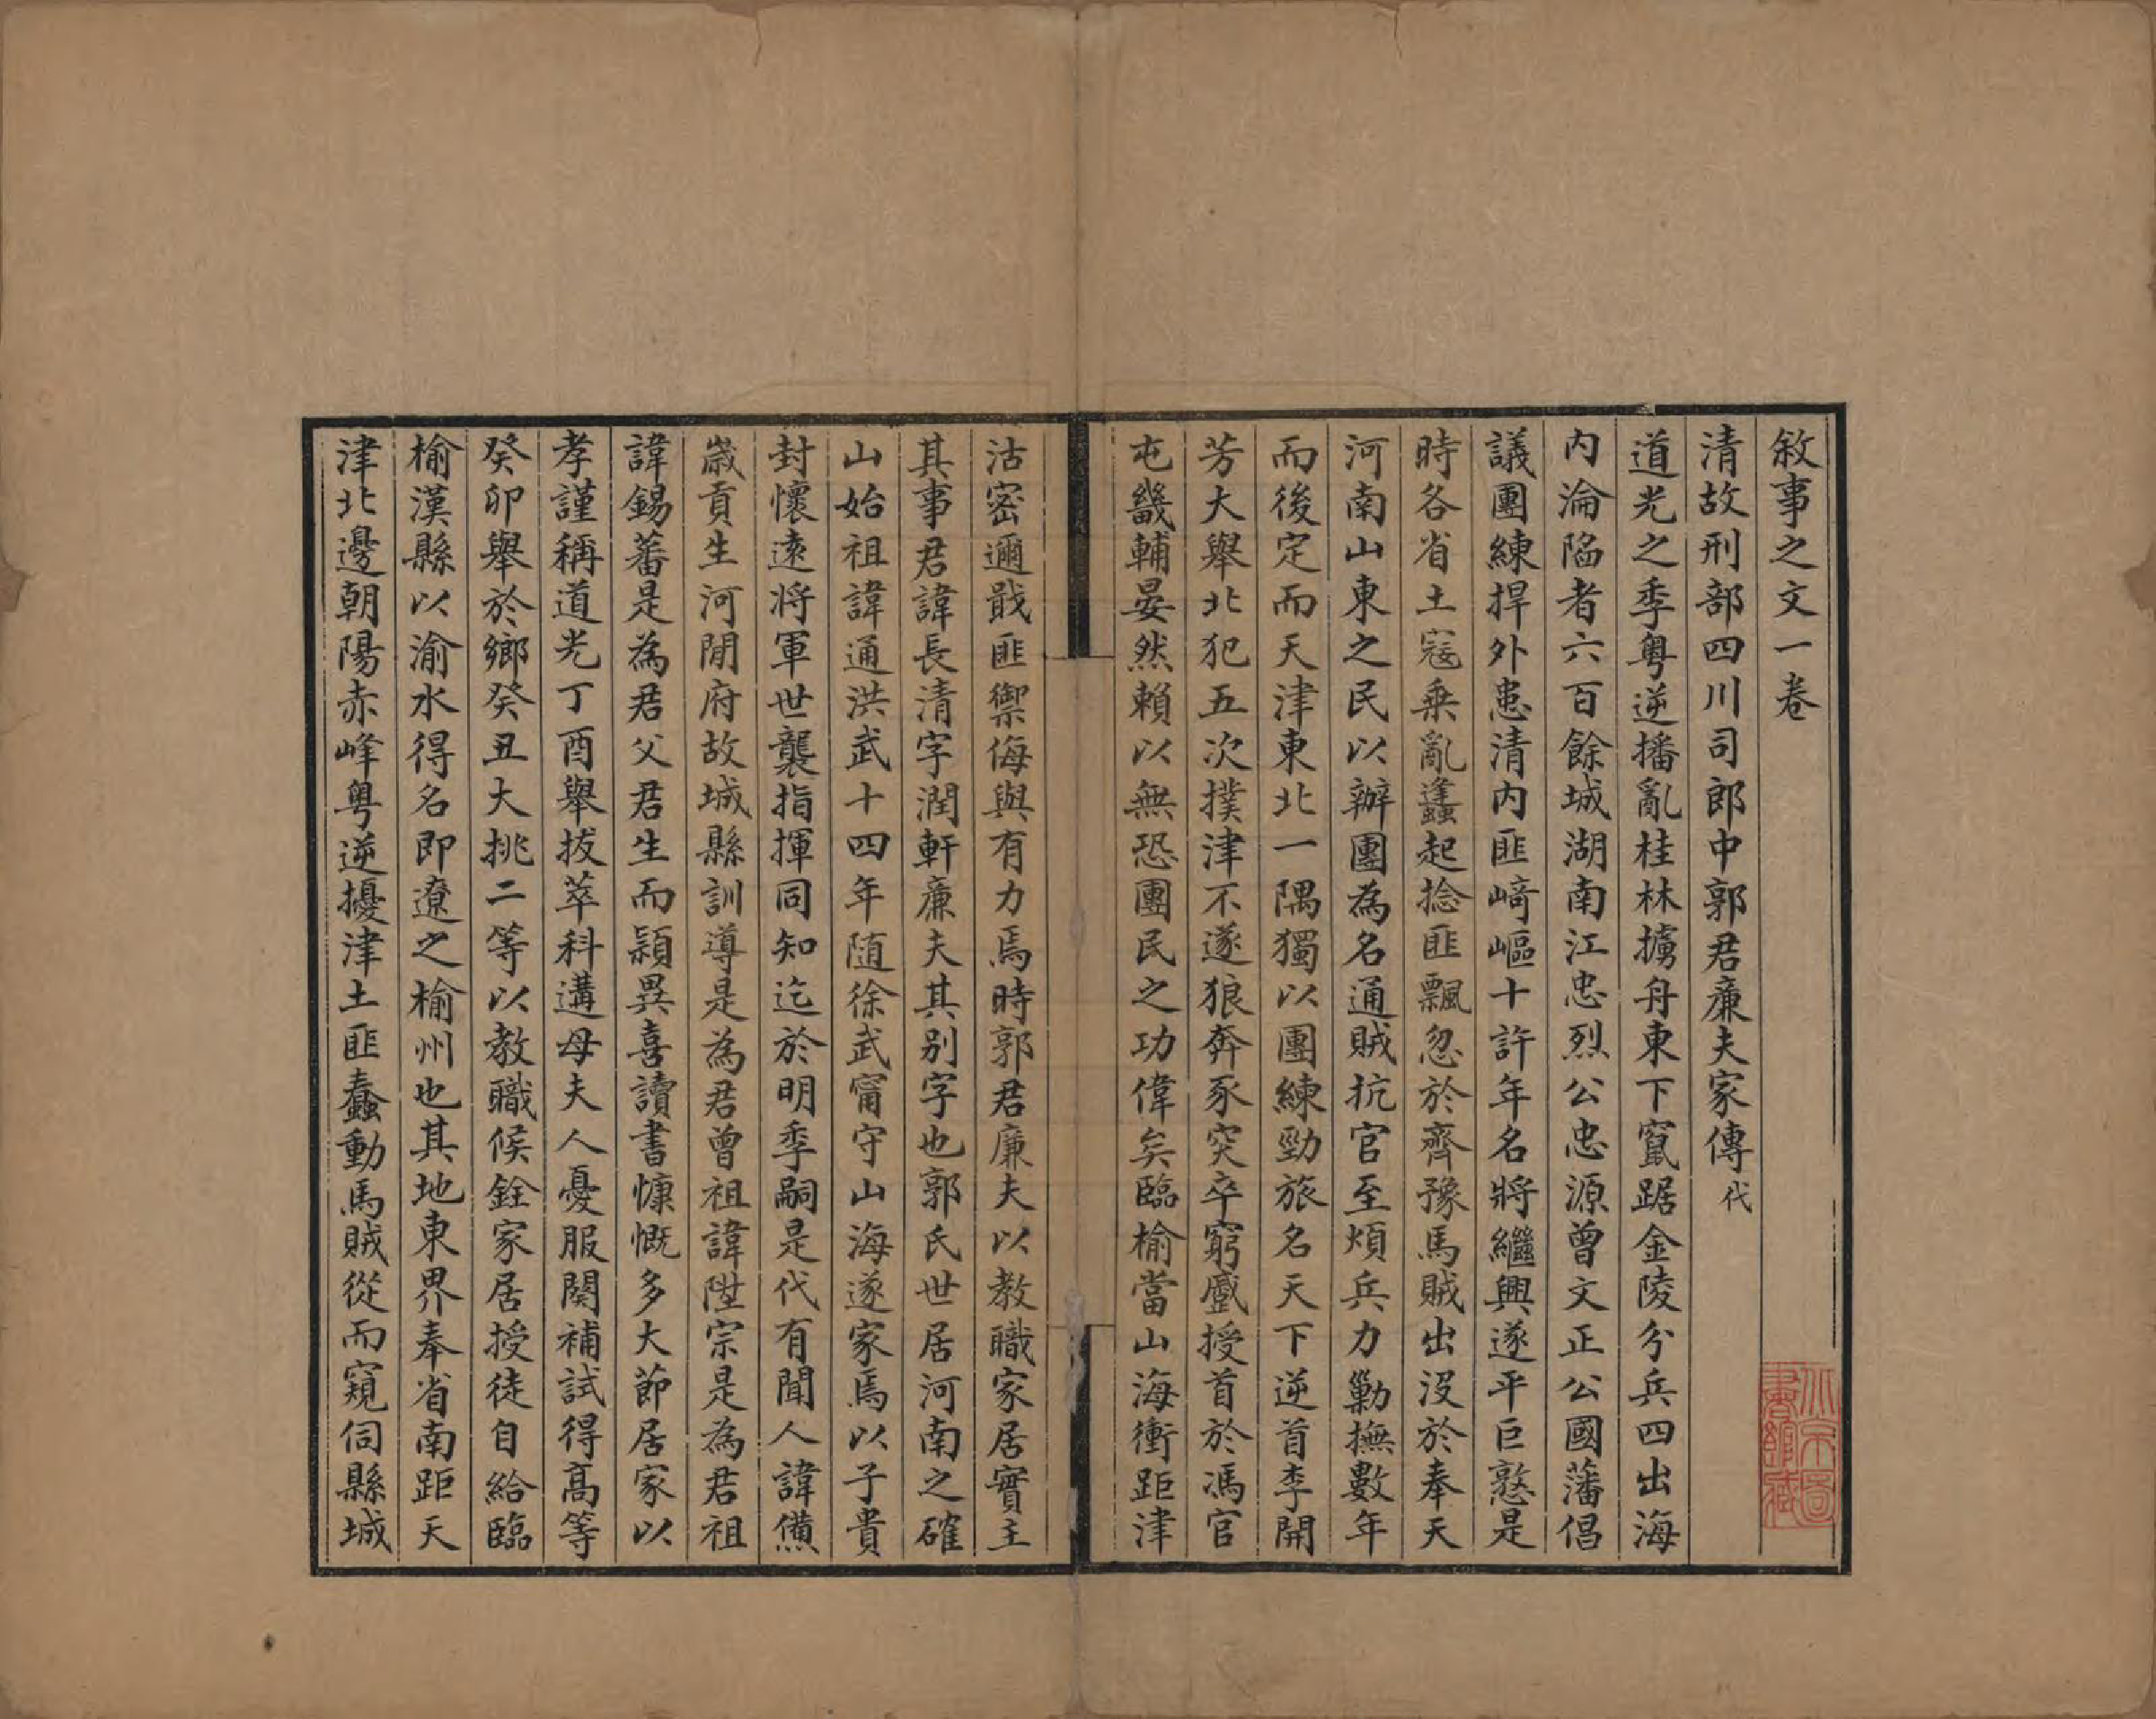 敘事之文一卷
清故刑部四川司郎中郭君廉夫家傳代
道光之季粵逆播亂桂林擄舟東下竄踞金陵分兵四出海
內淪陷者六百餘城湖南江忠烈公忠源曾文正公國藩倡
議團練捍外患清內匪崎嶇十許年名將繼興遂平巨憝是
時各省土寇乘亂蠭起捻匪飄忽於齊豫馬賊出沒於奉天
河南山東之民以辦團為名通賊抗官至煩兵力勦撫數年
而後定而天津東北一隅獨以團練勁旅名天下逆首李開
芳大舉北犯五次撲津不遂狼奔豕突卒窮蹙授首於馮官
屯畿輔晏然賴以無恐團民之功偉矣臨榆當山海衝距津
沽密邇戢匪禦侮與有力焉時郭君廉夫以教職家居實主
其事君諱長清字潤軒廉夫其别字也郭氏世居河南之確
山始祖諱通洪武十四年随徐武甯守山海遂家焉以子貴
封懷遠将軍世襲指揮同知迄於明季嗣是代有聞人諱儁
歲貢生河閒府故城縣訓導是為君曾祖諱陞宗是為君祖
諱錫蕃是為君父君生而穎異喜讀書慷慨多大節居家以
孝謹稱道光丁酉舉拔萃科遘母夫人憂服闋補試得高等
癸卯舉於鄉癸丑大挑二等以教職候銓家居授徒自給臨
榆漢縣以渝水得名即遼之榆州也其地東界奉省南距天
津北邊朝陽赤峰粵逆擾津土匪蠢動馬賊從而窺伺縣城
京圖
書館藏